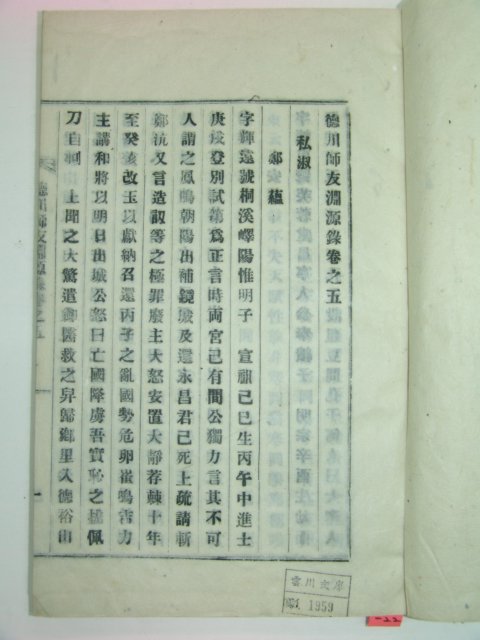 德川師友淵源錄卷之五
私淑
鄭蘊
字輝遠號桐溪嶧陽惟明子 宣祖己巳生丙午中進士
庚戌登別試第爲正言時兩宮己有間公獨力言其不可
人謂之鳳鳴朝陽出補鏡城及還永昌君已死上疏請斬
鄭沆又言造訒等之極罪廢主大怒安置大靜荐蕀十年
至癸亥改玉以獻納召還丙子之亂國勢危卵崔鳴吉力
主講和將以明日出城公怒曰亡國降虜吾實恥之佩
刀自 上聞之大驚遣醫救之舁歸鄉里入德裕山
德川師友淵源錄卷之五
一
雲川文庫
1959
-22